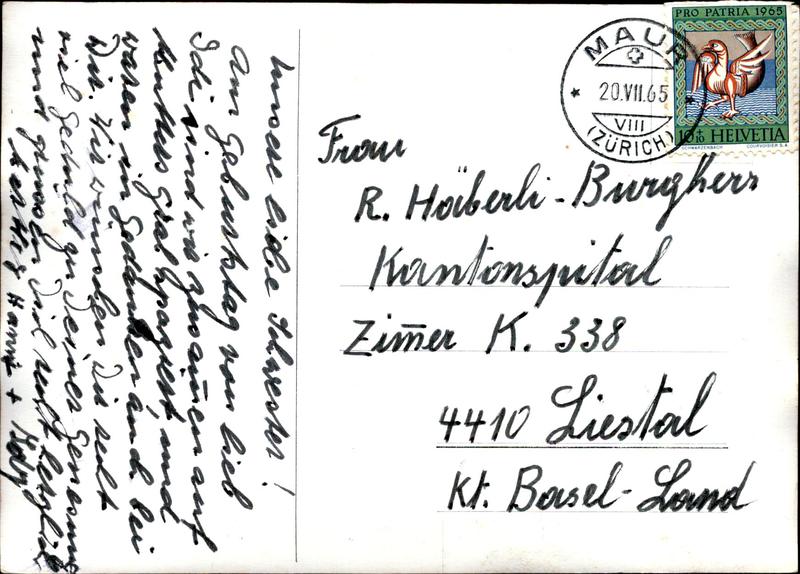 Unsere liebe Schwester!
Am Geburtstag von lieb
Idi sind wir zusam̄en auf
Mutters Grab spaziert und
waren in Gedanken auch bei
Dir. Wir wünschen Dir recht
viel Geduld zu Deiner Genesung
und grüssen Dich recht herzlich
Hanni +
PRO PATRIA 1965
10+10 HELVETIA
SCHWARZENBACH COURVOISIER S.A.
MAUR
20.VII.65
VIII
(ZÜRICH)
Frau
R. Häberli-Burgherr
Kantonspital
Zim̄er K. 338
4410 Liestal
Kt. Basel-Land